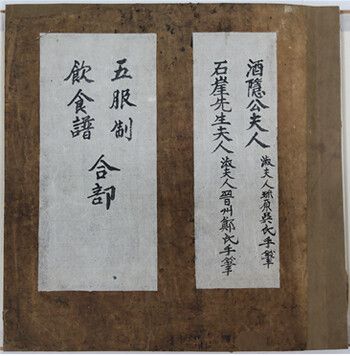 酒隱公夫人 淑夫人珎原吳氏手筆
石崖先生夫人 淑夫人晉州鄭氏手筆
五服制
飮食譜
合部